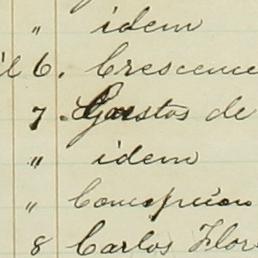 " idem
il 6. Crescenc
7. Gastos de
" idem
" Concepcion
8 Carlos Flor